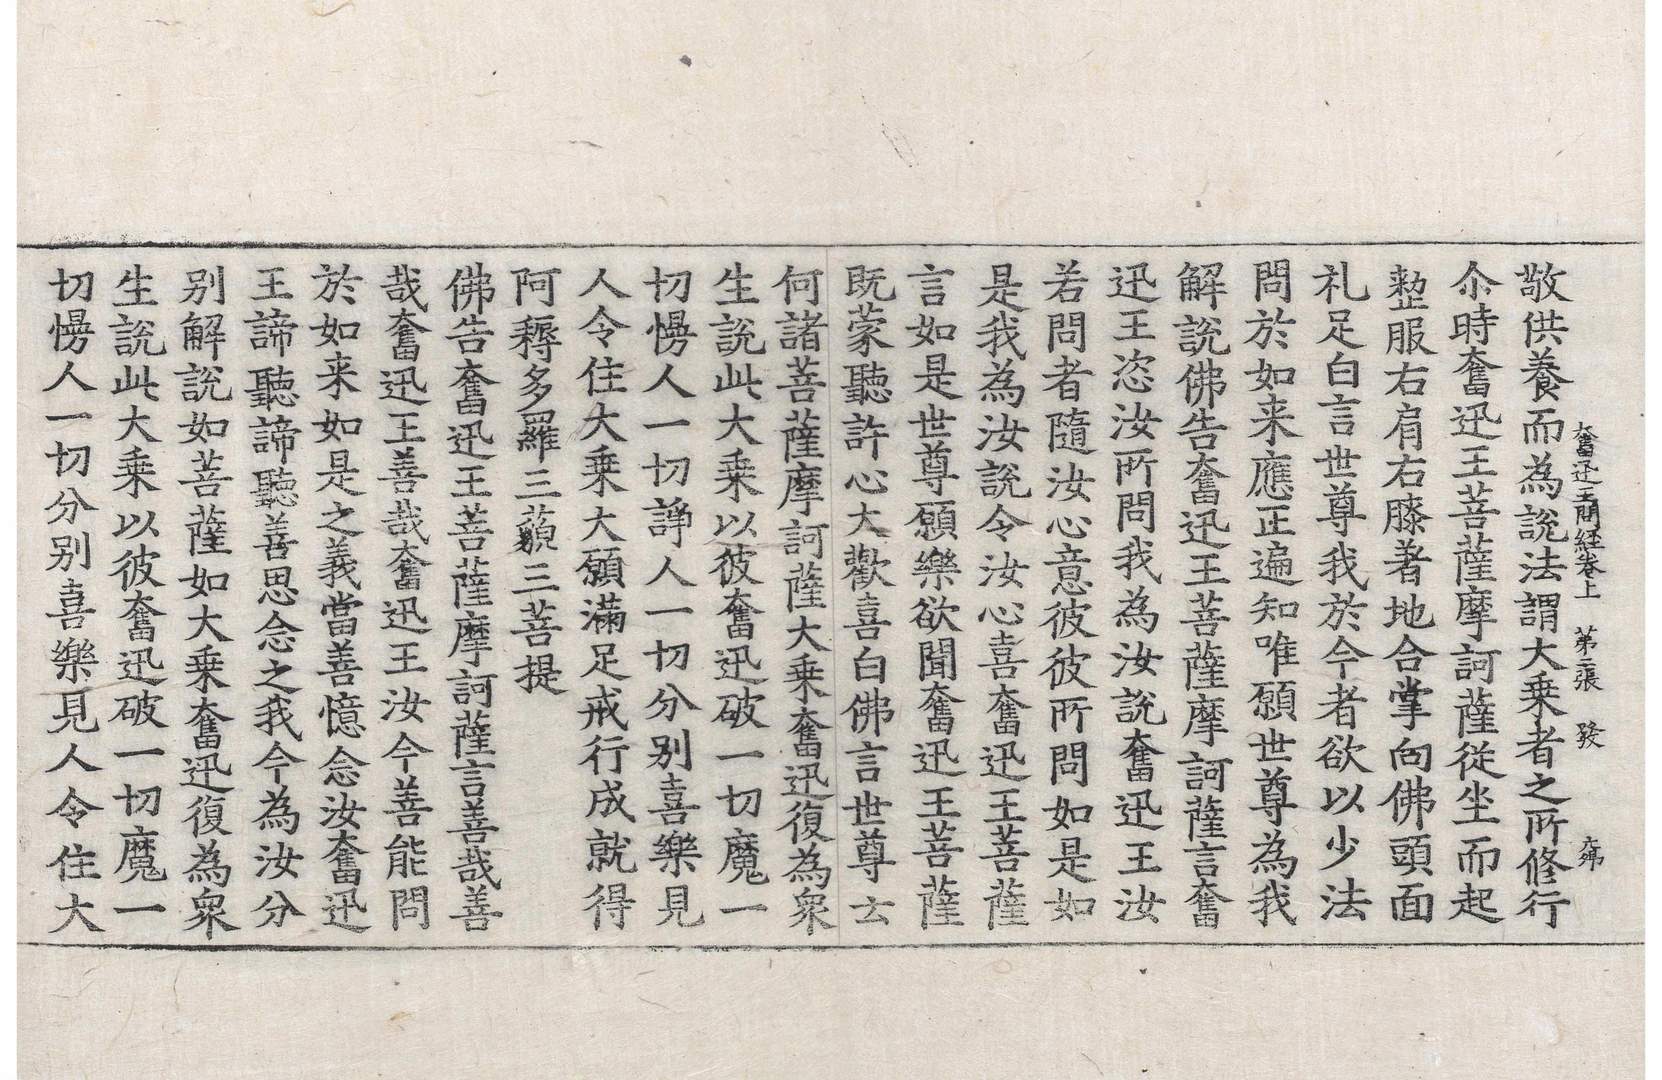 奮迅王問経卷上　第二張　發
敬供養而為說法謂大乗者之所修行
尒時奮迅王菩薩摩訶薩從坐而起
整服右肩右膝著地合掌向佛頭面
礼足白言世尊我於今者欲以少法
問於如来應正遍知唯願世尊為我
解說佛告奮迅王菩薩摩訶薩言奮
迅王恣汝所問我為汝說奮迅王汝
若問者隨汝心意彼彼所問如是如
是我為汝說令汝心喜奮迅王菩薩
言如是世尊願樂欲聞奮迅王菩薩
既蒙聽許心大歡喜白佛言世尊云
何諸菩薩摩訶薩大乗奮迅復為衆
生說此大乗以彼奮迅破一切魔一
切慢人一切諍人一切分别喜樂見
人令住大乗大願滿足戒行成就得
阿耨多羅三藐三菩提
佛告奮迅王菩薩摩訶薩言善哉善
哉奮迅王善哉奮迅王汝今善能問
於如来如是之義當善憶念汝奮迅
王諦聽諦聽善思念之我今為汝分
别解說如菩薩如大乗奮迅復為衆
生說此大乗以彼奮迅破一切魔一
切慢人一切分别喜樂見人令住大